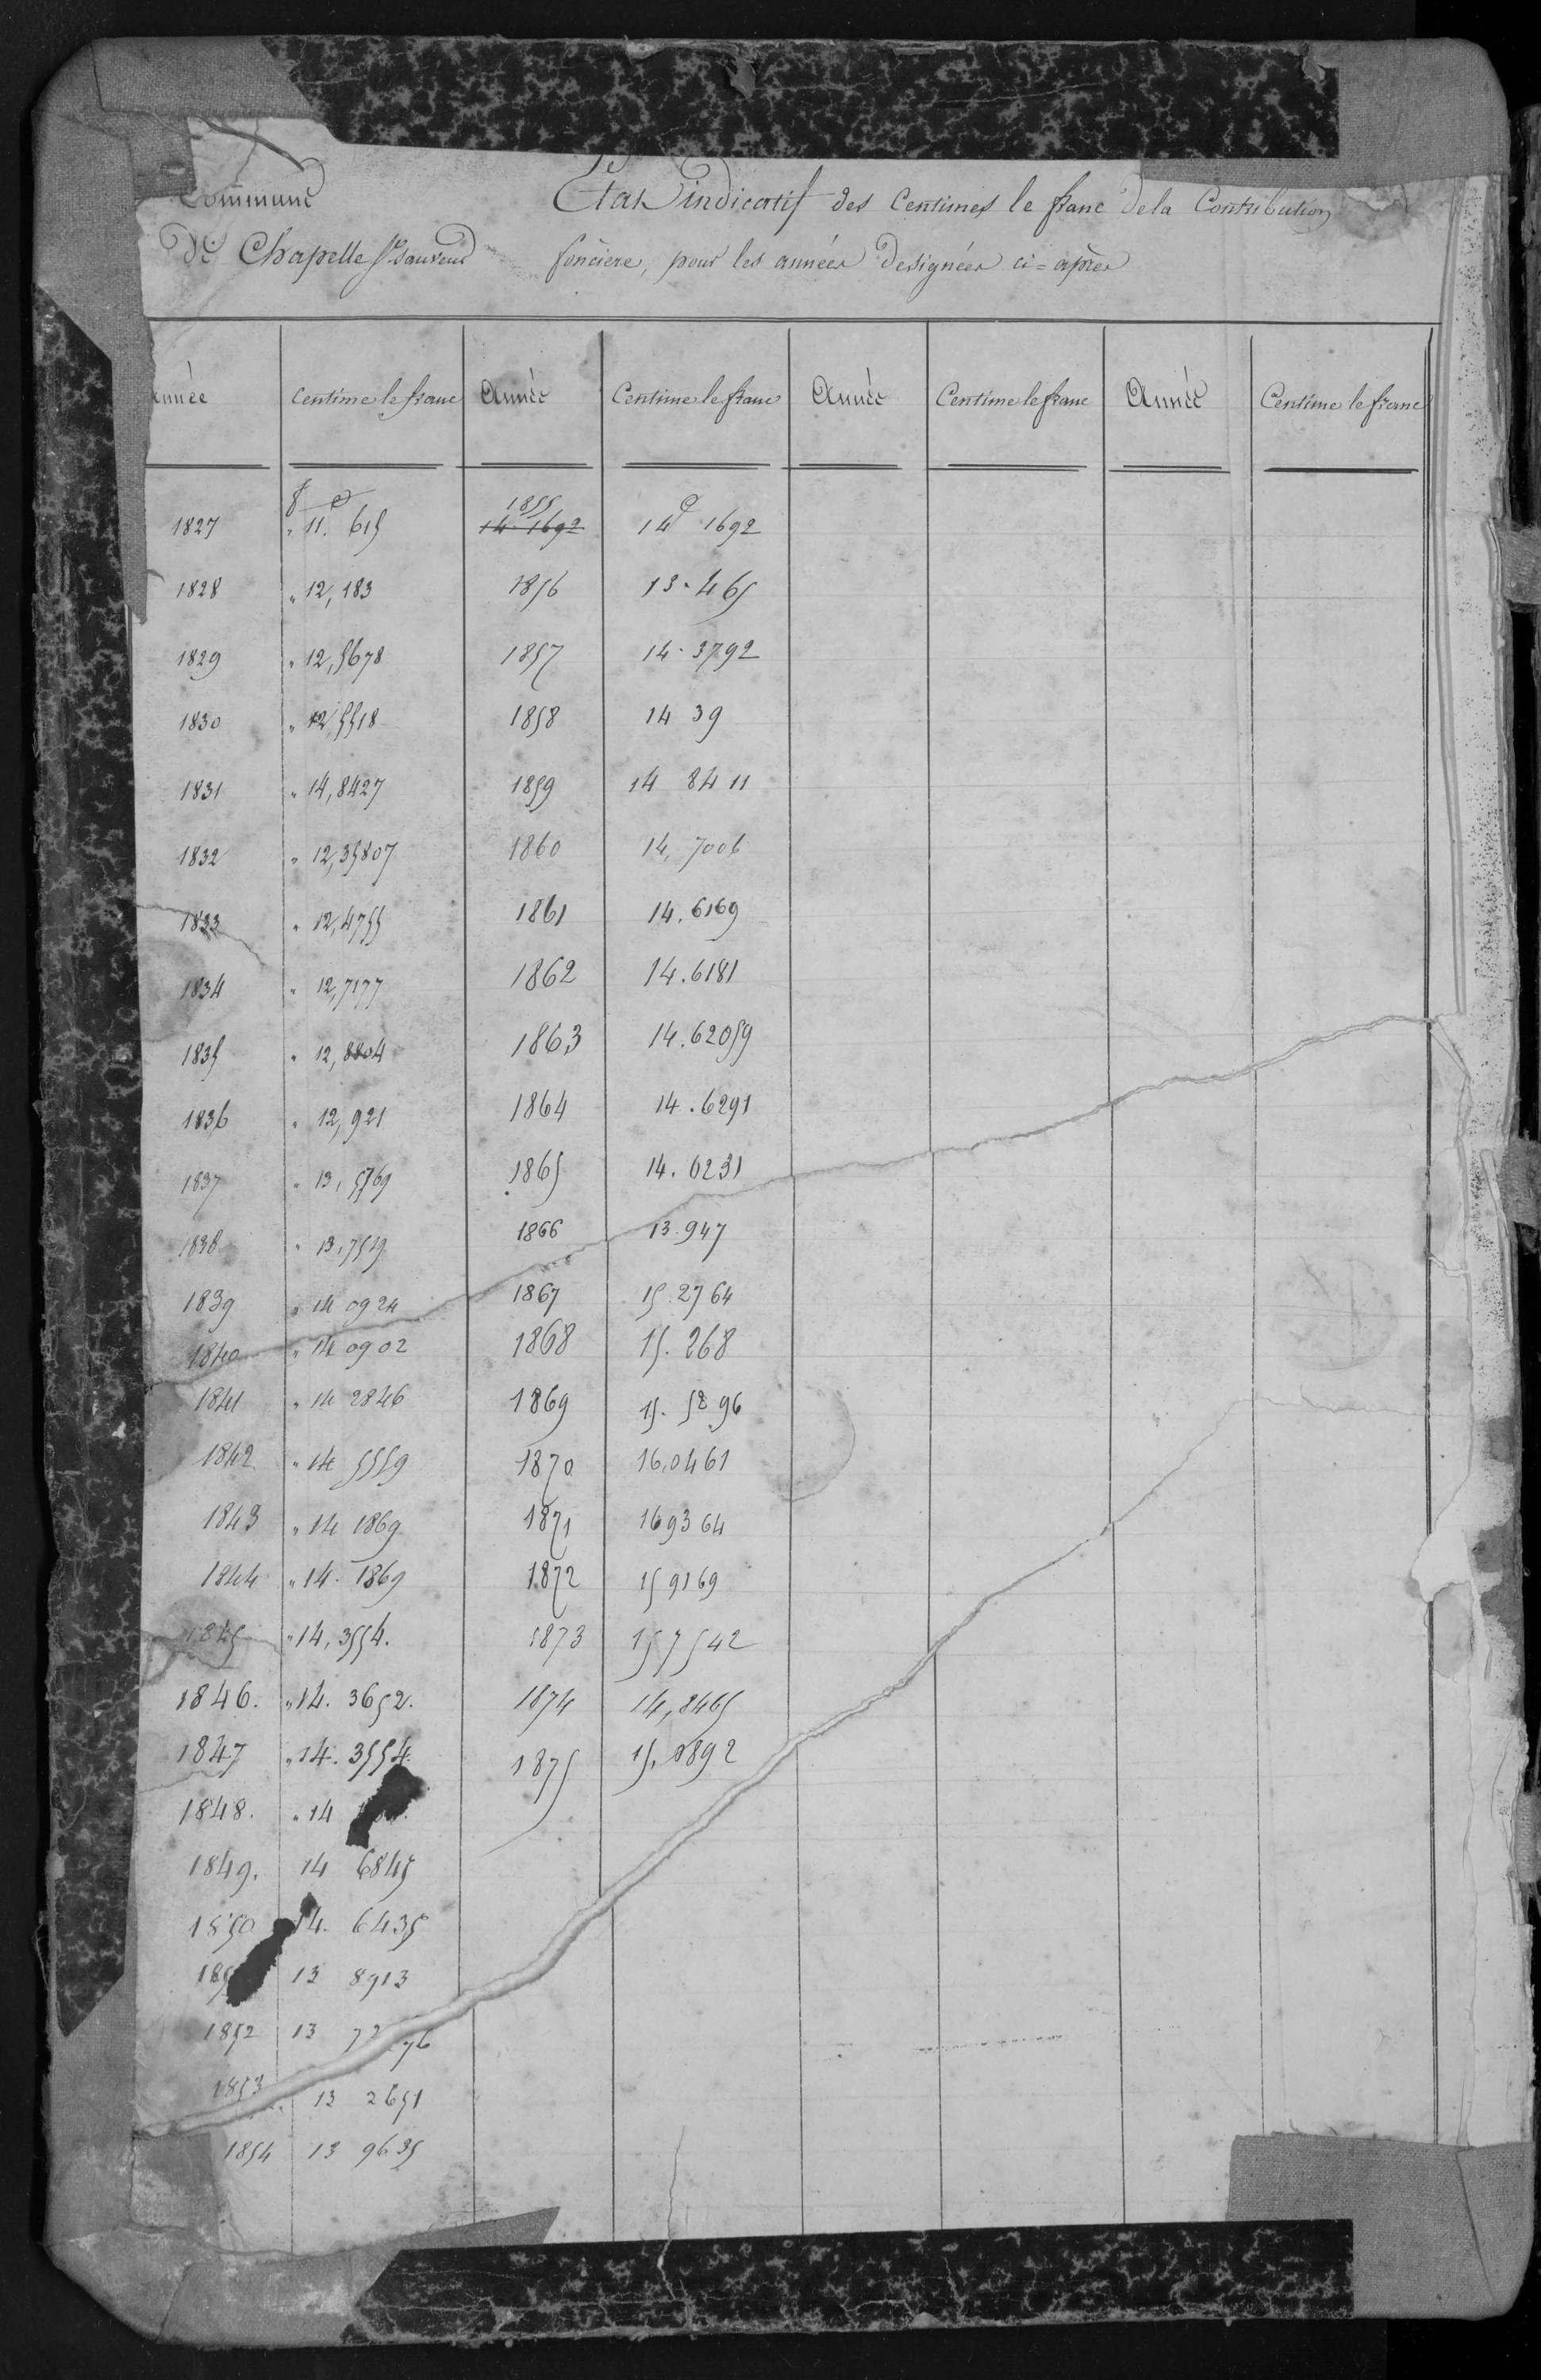 Commune
De Chapelle St Sauveur
Etat indicatif des Centimes le franc de la Contribution
foncière, pour les années designées ci=après
Année | Centime le franc | Année | Centime le franc | Année | Centime le franc | Année | Centime le franc
1827 | " 11. 615 | 1855 14.1692 | 14c 1692
1828 | " 12,183 | 1856 | 13.465
1829 | " 12,5678 | 1857 | 14.3792
1830 | " 12,5518 | 1858 | 14 39
1831 | " 14,8427 | 1859 | 14 8411
1832 | " 12,35807 | 1860 | 14,7006
1833 | " 12,4755 | 1861 | 14.6169
1834 | " 12,7177 | 1862 | 14.6181
1835 | " 12,8804 | 1863 | 14.62059
1836 | " 12,921 | 1864 | 14.6291
1837 | " 13,5769 | 1865 | 14.6231
1838 | " 13,7519 | 1866 | 13.947
1839 | " 14 0924 | 1867 | 15.2764
1840 | " 14 0902 | 1868 | 15.268
1841 | " 14 2846 | 1869 | 15.5896
1842 | " 14 5559 | 1870 | 16,0461
1843 | " 14 1869 | 1871 | 169364
1844 | " 14. 1869 | 1872 | 159169
1845 | " 14,3554. | 1873 | 157542
1846. | " 14. 3652. | 1874 | 14,8465
1847 | " 14. 3554. | 1875 | 15.1892
1848. | " 14
1849. | 14 6845
1850 | 14. 6435
185 | 13 8913
1852 | 13 72 76
1853 | 13 2651
1854 | 13 9635